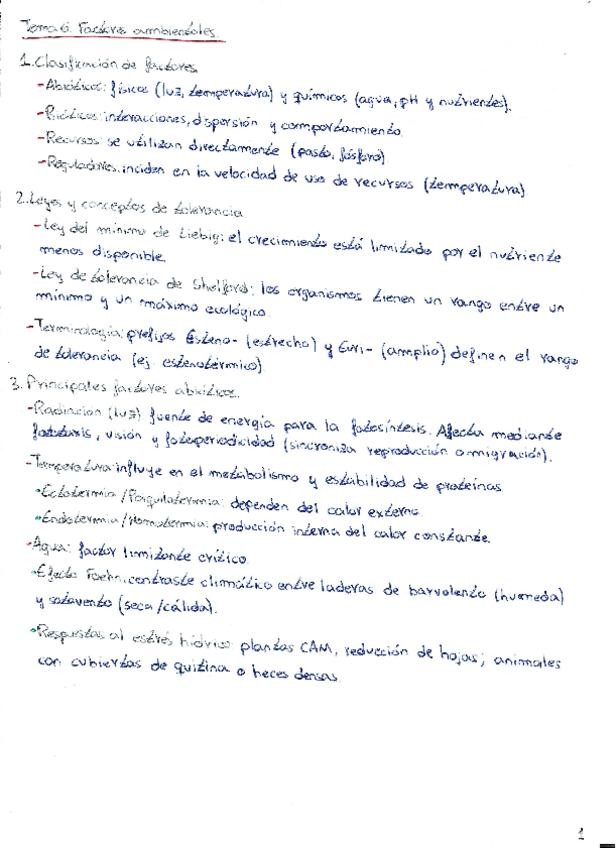 Tema 6. Factores ambientales.
1. Clasificación de factores
-Abióticos: físicos (luz, temperatura) y químicos (agua, pH y nutrientes).
-Bióticos: interacciones, dispersión y comportamiento.
-Recursos se utilizan directamente (pasto, fósforo)
-Reguladores: inciden en la velocidad de uso de recursos (temperatura)
2. Leyes y conceptos de tolerancia
-Ley del mínimo de Liebig: el crecimiento está limitado por el nutriente
menos disponible.
-Ley de tolerancia de Shelford: los organismos tienen un rango entre un
mínimo y un máximo ecológico.
-Terminología: prefijos Esteno- (estrecho) y Euri- (amplio) definen el rango
de tolerancia (ej estenotérmico)
3. Principales factores abióticos.
-Radiación (luz) fuente de energía para la fotosíntesis. Afecta mediante
fototaxis, visión y fotoperiodicidad (sincroniza reproducción o migración).
-Temperatura: influye en el metabolismo y estabilidad de proteínas
•Ectotermia / Poiquilotermia: dependen del calor externo.
•Endotermia / Homotermia: producción interna del calor constante.
-Agua: factor limitante crítico.
•Efecto Foehn: contraste climático entre laderas de barlovento (humeda)
y sotavento (seca/cálida).
•Respuestas al estrés hídrico: plantas CAM, reducción de hojas; animales
con cubiertas de quitina o heces densas.
1